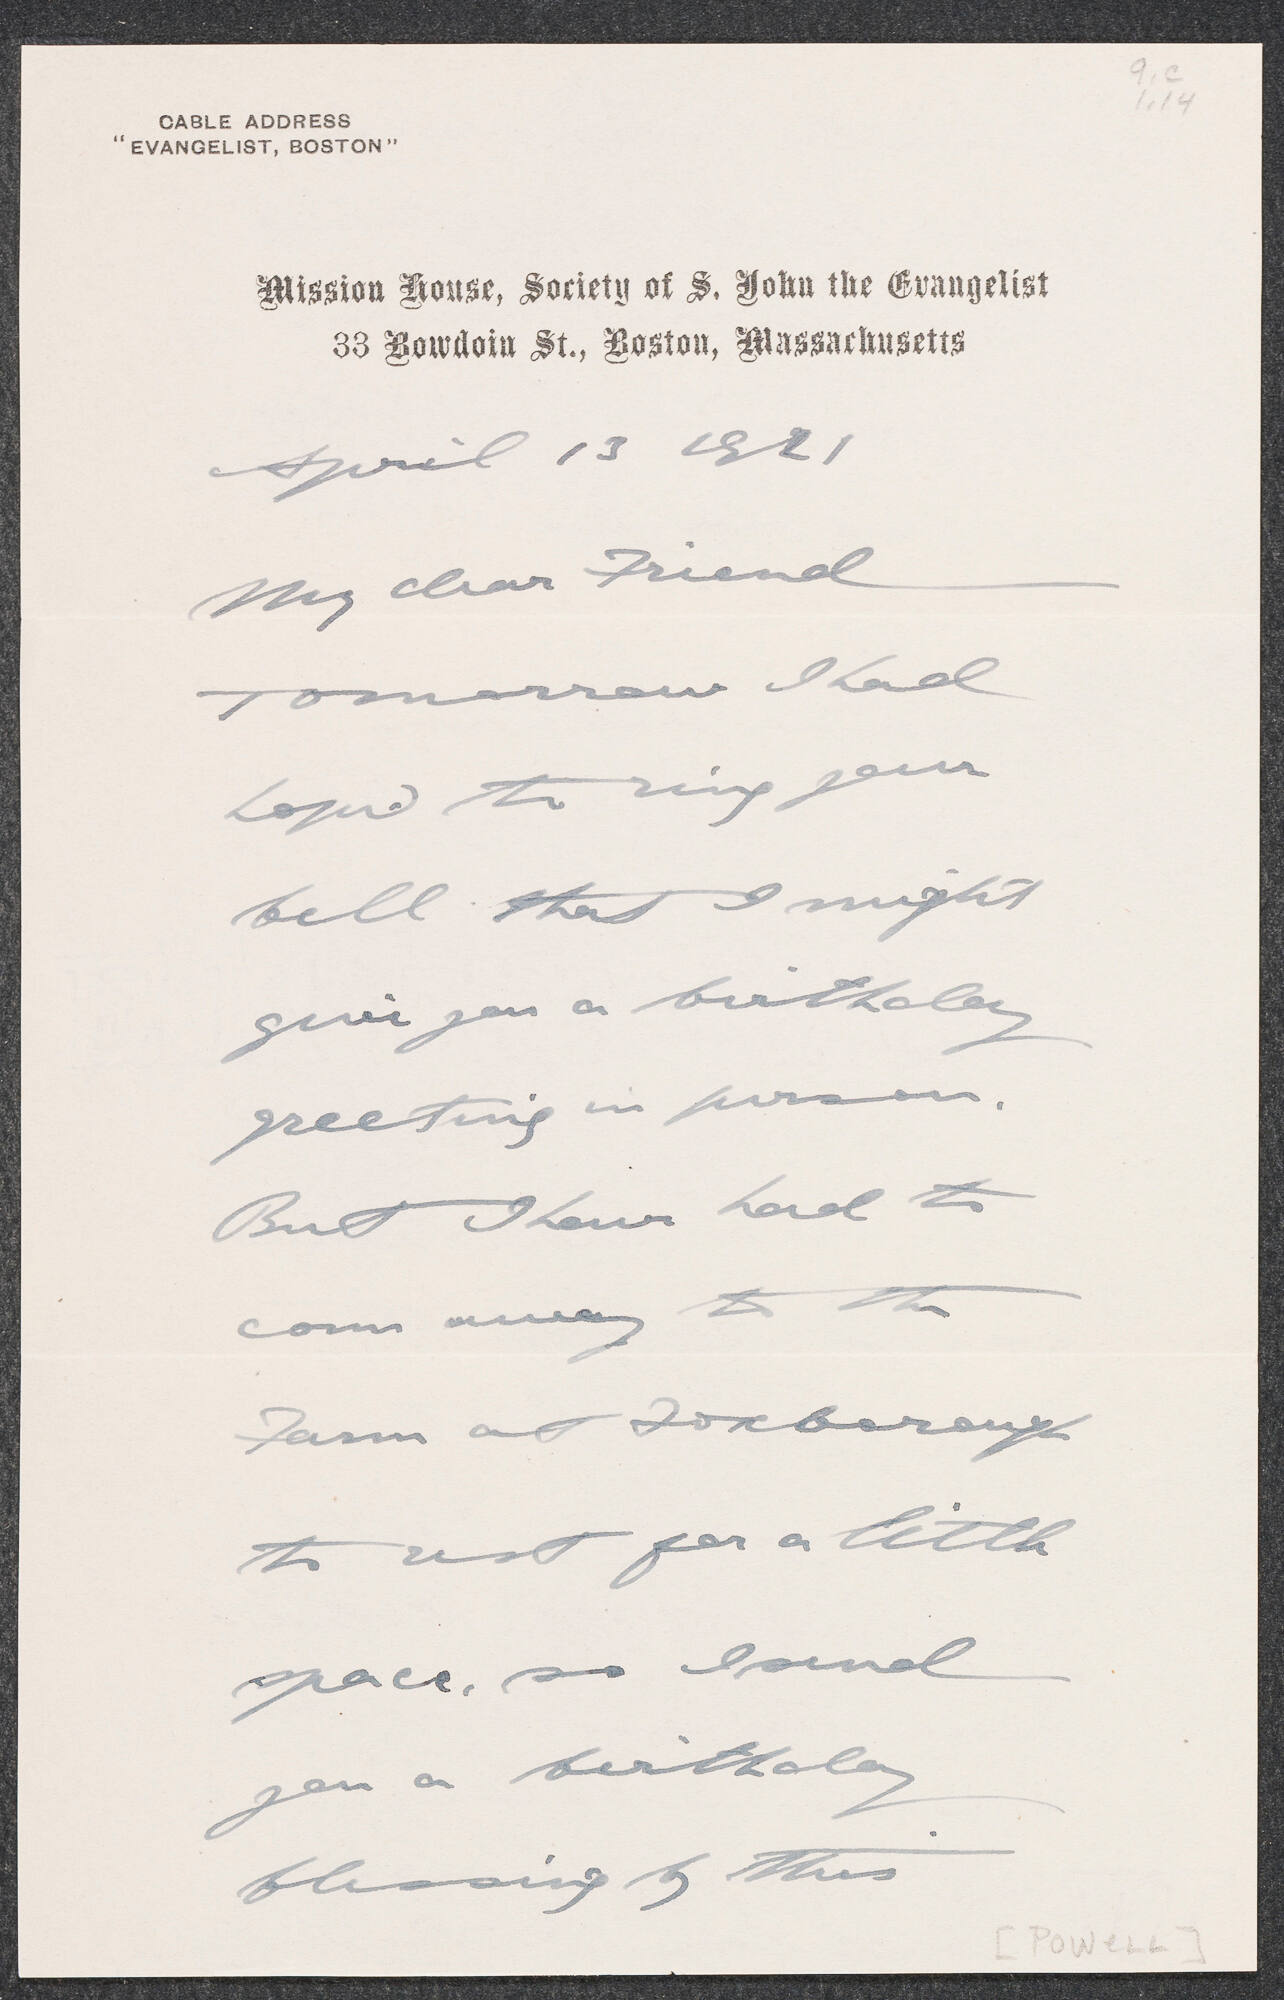 9.c
1.14
CABLE ADDRESS
"EVANGELIST, BOSTON"
Mission House, Society of S. John the Evangelist
33 Bowdoin St., Boston, Massachusetts
April 13 1921
My dear Friend
Tomorrow I had
hoped to ring your
bell that I might
give you a birthday
greeting in person.
But I have had to
come away to the
Farm at Foxborough
to rest for a little
space, so I send
you a birthday
blessing by this
[POWELL]